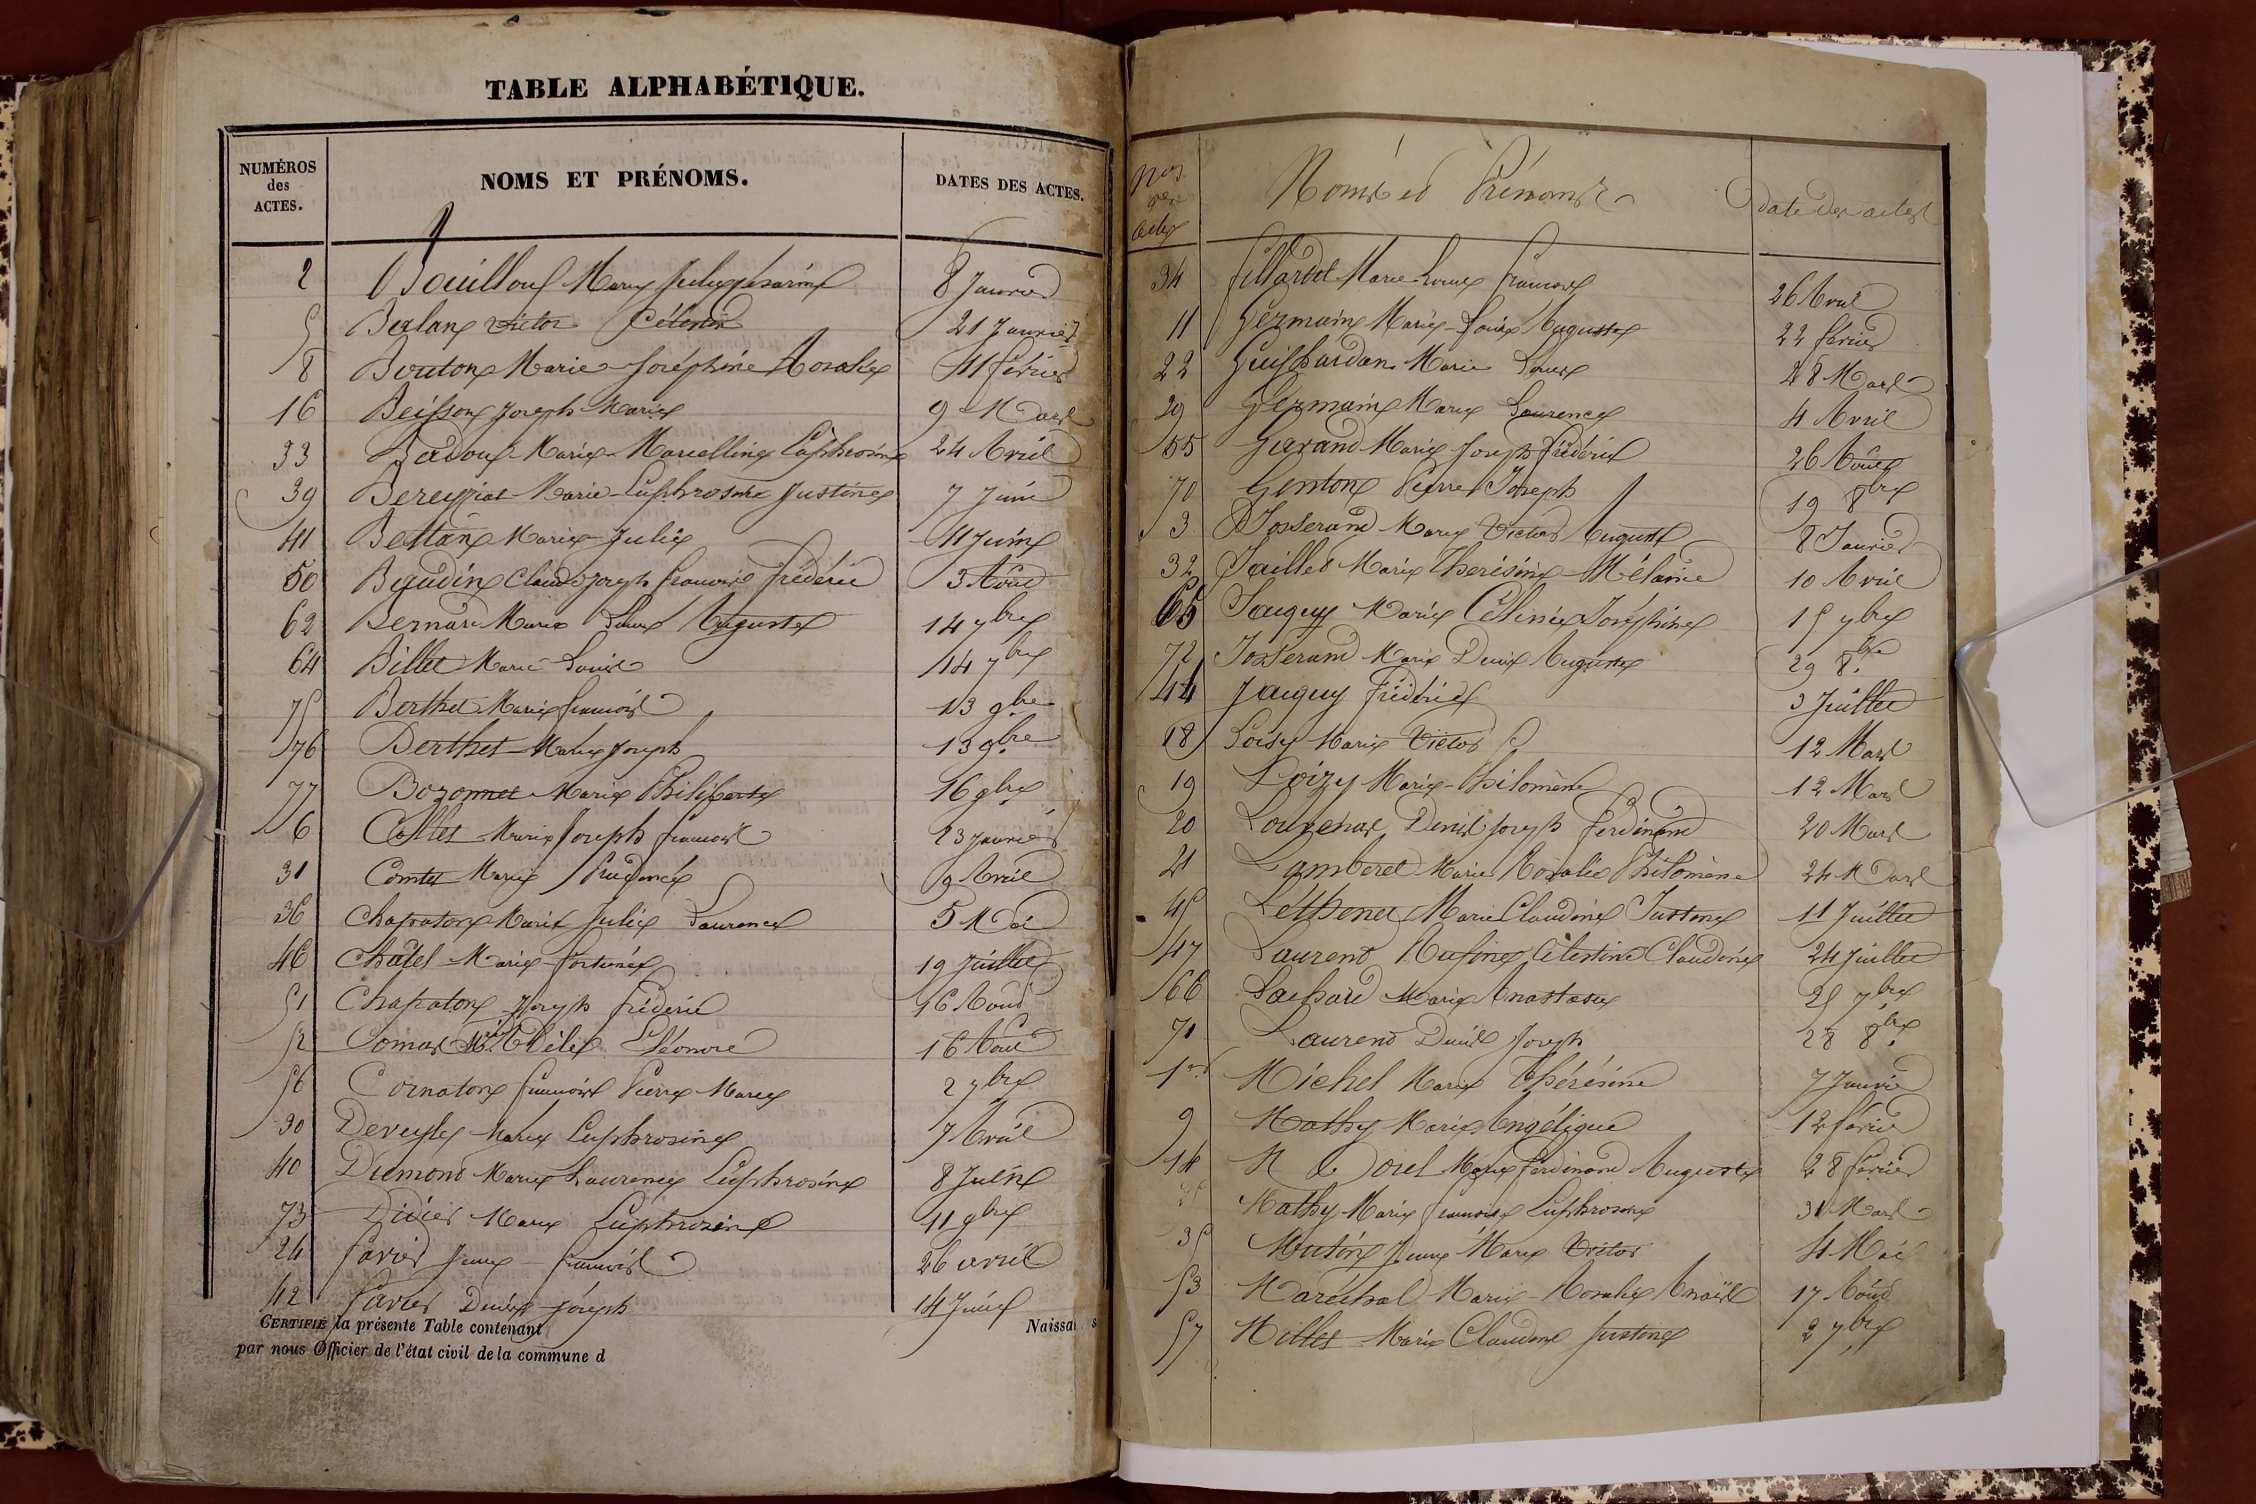 TABLE ALPHABÉTIQUE.
NUMÉROS des ACTES. NOMS ET PRÉNOMS. DATES DES ACTES.
2 Bouilloux Marie Julie Césarine 8 Janvier
5 Berlan Victor Célestin 21 Janvier
8 Bouton Marie Joséphine Rosalie 11 février
16 Beisson Joseph Marie 9 Mars
33 Badoux Marie Marcelline Euphrosine 24 Avril
39 Bereyziat Marie Euphrosine Justine 7 Juin
41 Bettan Marie Julie 11 Juin
50 Baudin Claude Joseph François Frédéric 3 Août
62 Bernard Marie Auguste 14 7bre
64 Billet Marie Louise 14 7bre
75 Berthet Marie François 13 9bre
76 Berthet Marie Joseph 13 9bre
77 Bozonnet Marie Philiberte 16 9bre
6 Collet Marie Joseph François 23 Janvier
31 Comtet Marie Prudence 9 Avril
36 Chapaton Marie Julie Laurence 5 Mai
46 Châtel Marie Fortuné 19 Juillet
51 Chapaton Joseph frédéric 16 Août
52 Comas Mie Adèle Eléonore 16 Août
56 Cornaton François Pierre Marie 2 7bre
30 Deveyle Marie Euphrosine 7 Avril
40 Dumond Marie Laurence Euphrosine 8 Juin
73 Didier Marie Euphrosine 11 9bre
24 favier François 26 avril
42 Favier Denis Joseph 14 Juin
CERTIFIÉ la présente Table contenant Naissances
par nous Officier de l'état civil de la commune d
Nos des actes Noms et Prénoms date des actes
34 fillardet Marie Louise François 26 Avril
11 Germain Marie Louise Auguste 22 février
22 Guichardan Marie Louise 28 Mars
29 Germain Marie Laurence 4 Avril
55 Garand Marie Joseph Frédéric 26 Août
70 Genton Pierre Joseph 19 8bre
3 Josserand Marie Victor Auguste 8 Janvier
32 Jaillet Marie Therésine Mélanie 10 Avril
65 Jauguy Marie Célinie Joséphine 15 7bre
72 Josserand Marie Denis Auguste 29 8bre
44 Jauguy Frédéric 3 Juillet
18 Loisy Marie Victor 12 Mars
19 Loizy Marie Philomène 12 Mars
20 Denis Joseph Ferdinand 20 Mars
21 Lamberet Marie Rosalie Philomène 24 Mars
45 Léthenet Marie Claudine Justine 11 Juillet
47 Laurend Rufine Célestine Claudine 24 Juillet
66 Lachard Marie Anastasie 25 7bre
71 Laurend Denis Joseph 28 8bre
1er Michel Marie Thérésine 7 Janvier
9 Mathy Marie Angélique 12 février
14 Morel Marie Ferdinand Auguste 28 février
Mathy Marie Françoise Euphrosine 31 Mars
35 Mutin Marie Victor 4 Mai
53 Maréchal Marie Rosalie Anaïs 17 Août
57 Millet Marie Claudine Justine 2 7bre